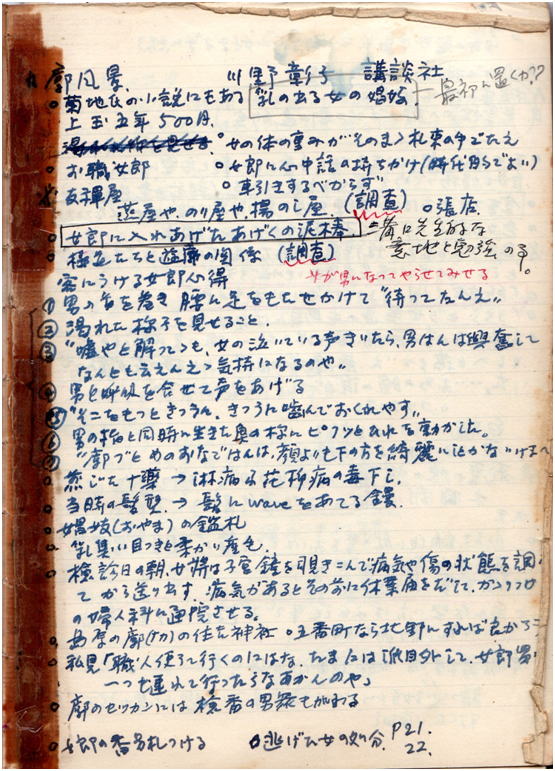 廓風景 川野彰子 講談社
菊地氏の小説にもある 乳の出る女の娼妓 最初に置くか??
上玉 五年 500円
女の体の重みがそのまま札束の中でたえ
お職女郎
女郎に心中話の持ちかけ(時代的でよい)
友禅屋
車引きするべからず
蒸屋や、のり屋や、楊のし屋 (調査) 張店
女郎に入れあげたあげくの泥棒
溝口先生的な
意地と勉強の事。
極道たちと遊廓の関係 (調査)
女が男になってやらせてみせる
客にうける女郎心得
① 男の首を巻き 腰に足をもたせかけて "待ってたんえ"
② 濡れた様子を見せること。
③ "嘘やと解ってゝも、女の泣いている声きいたら、男はんは興奮して
なんともええんえゝ気持になるのや"
④ 男と呼吸を合せて声をあげる
⑤ "そこをもっときつうん、きつうに噛んでおくれやす"
⑥ 男の指と同時に生きた魚の様にピクッと
⑦ "廓づとめのおなごはんは、顔より下の方を綺麗に
煎じた十薬 → 淋病や花柳病の毒下し
当時の髪型 → 髪に waveをあてる鏝
娼妓(おやま)の鑑札
乳臭い目つきと柔かい産毛
検診日の朝、女将は子宮鏡を覗きこんで病気や傷の状態を調
べてから送り出す。病気があるとその前に休業届をだして、かかりつけ
の婦人科に通院させる。
の廓の 神社 五番町なら北野にすれば良かろ
私見「職人使って行くのにはな、たまには派目外して、女郎買
一つも連れて行ったらなあかんのや」
廓のセッカンには 検番の男衆も加わる
女郎の番号札つける 逃げた女の処分 P21.
22.